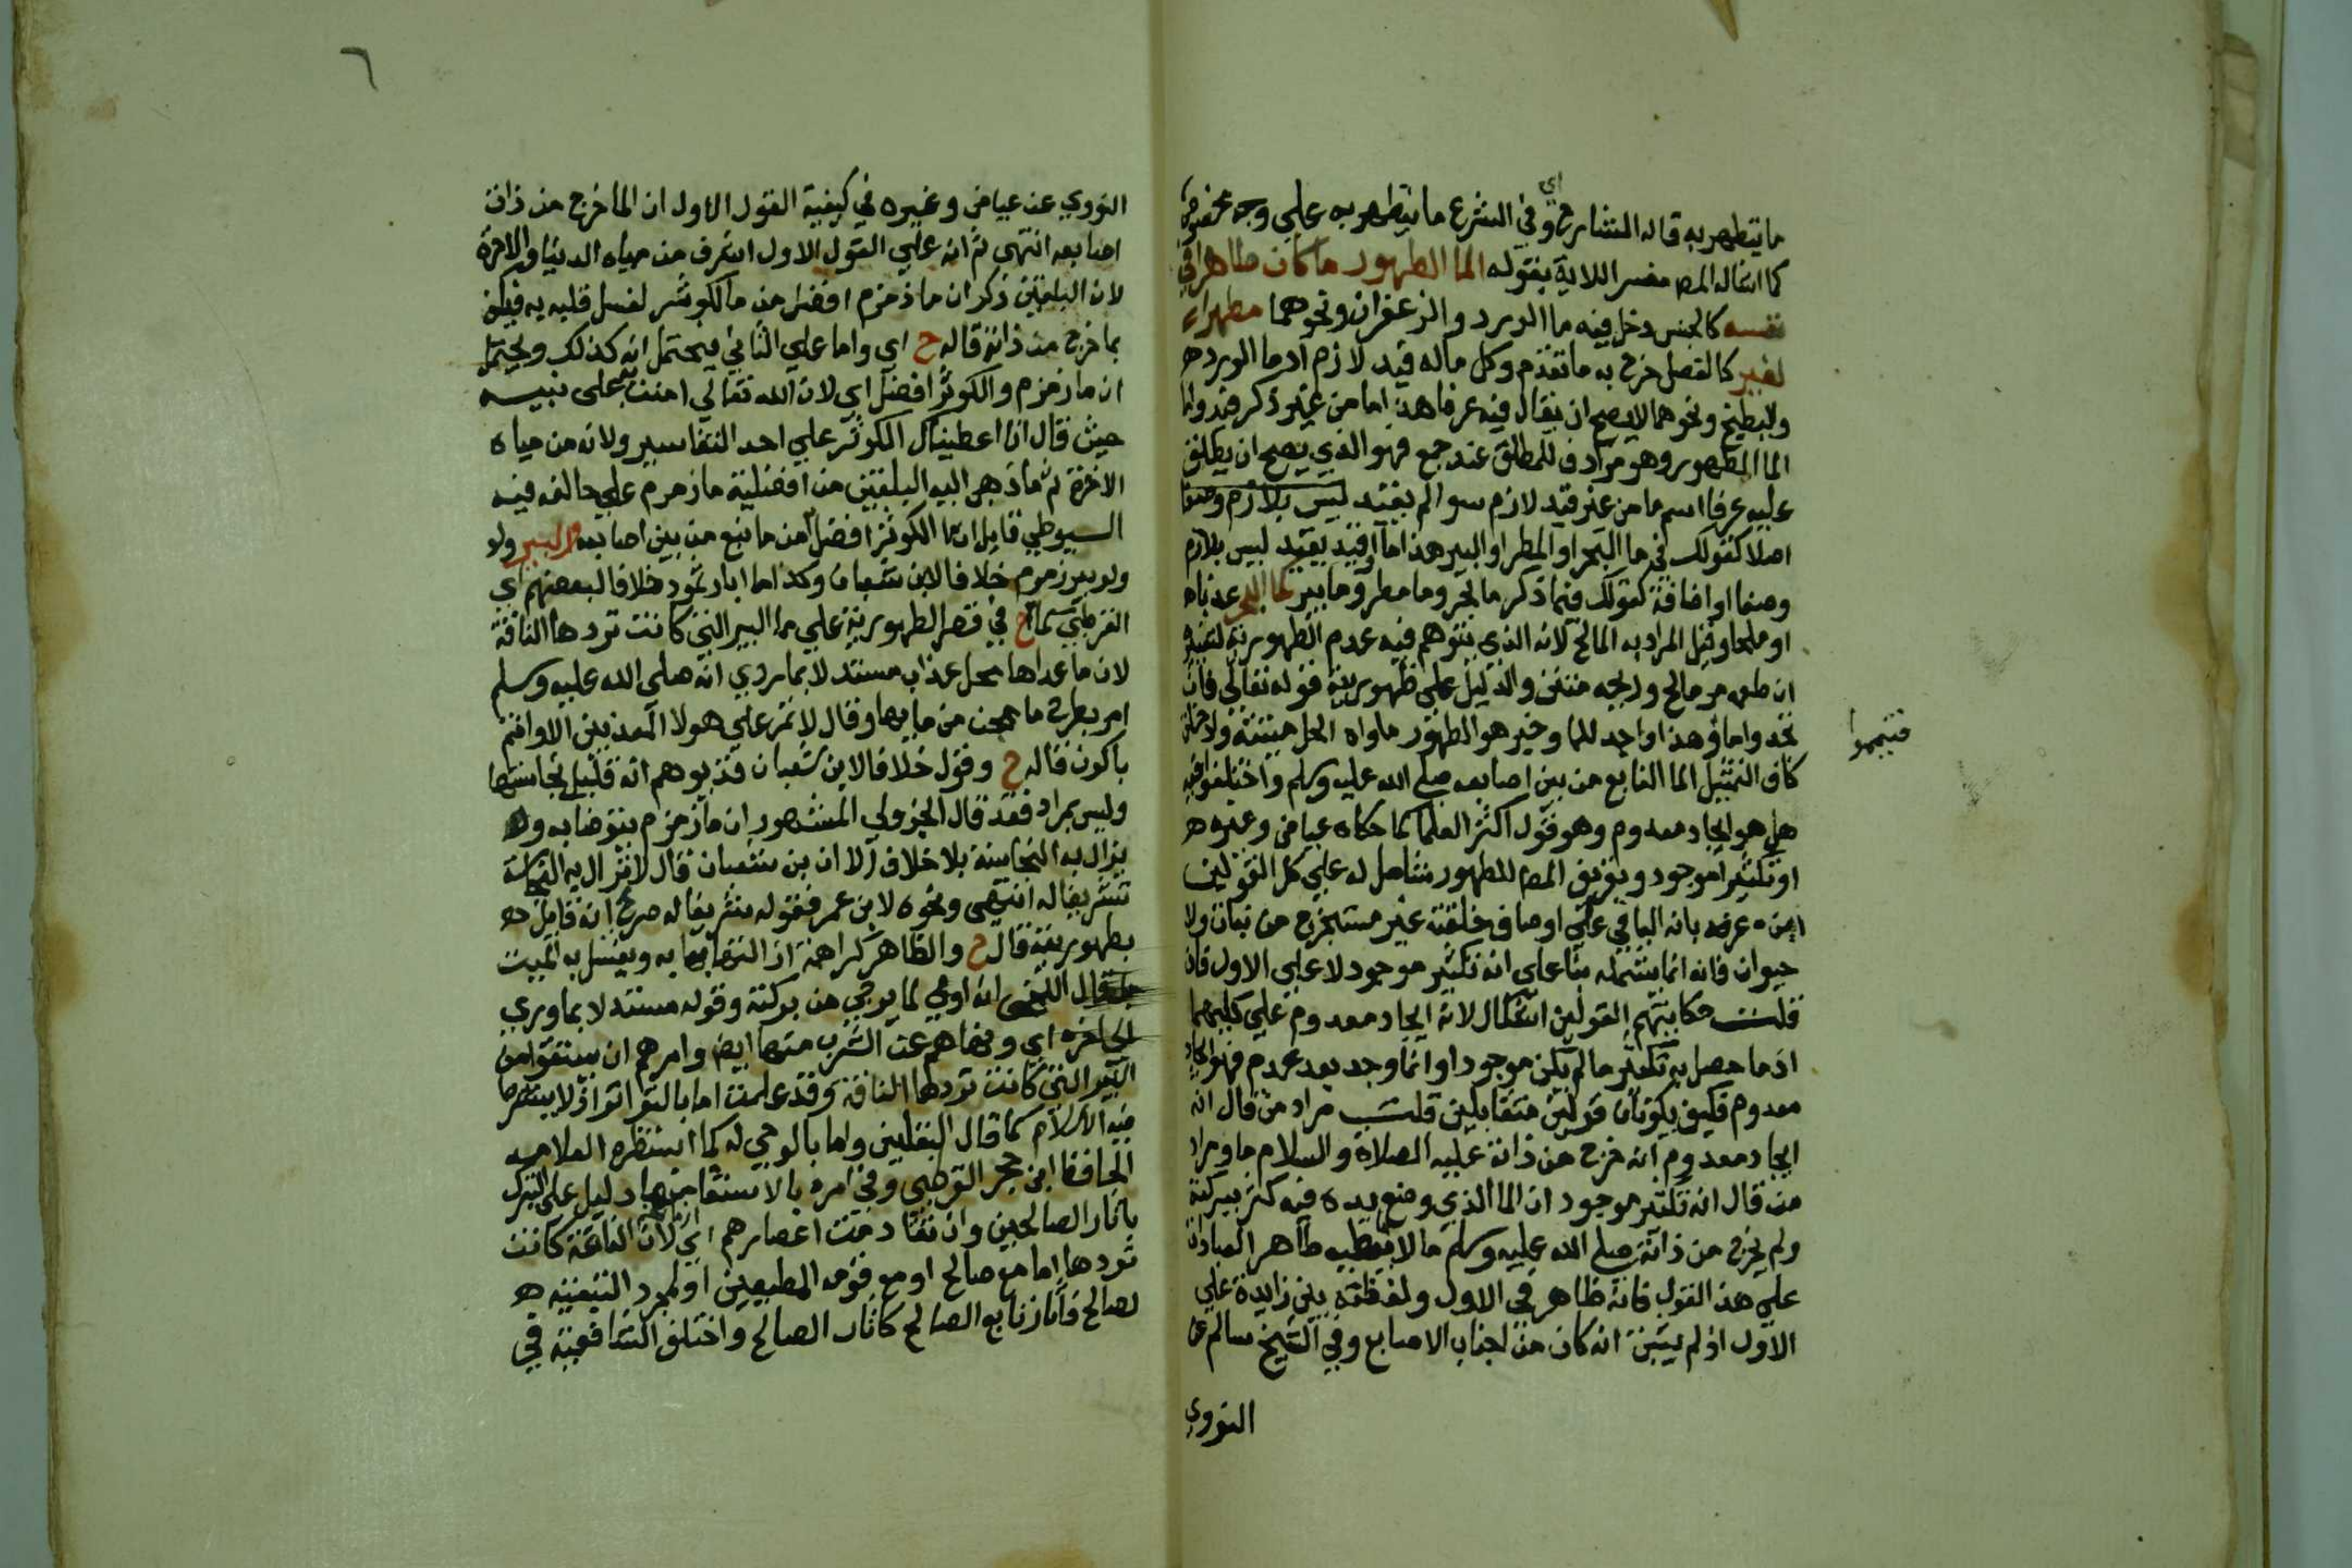 ما يتطهر به قاله الشارح وفي الشرع اي ما يتطهر به علي وجه مخصوص
كما اشار له المص مفسرا للاية بقوله الما الطهور ما كان طاهرا في
نفسه كالجنس دخل فيه ما الورد والزعفران ونحوهما مطهرا
لغيره كالفصل خرج به ما تقدم وكل ماله قيد لازم اذ ما الورد
والبطيخ ونحوهما لا يصح ان يقال فيه عرفا هذا ما من غير ذكر قيد واما
الما الطهور وهو مرادف للمطلق عند جمع فهو الذي يصح ان يطلق
عليه عرفا اسم ما من غير قيد لازم سوا لم يقيد ليس بلازم وصفا
اصلا كقولك في ما البحر او المطر او البير هذا ما او قيد بقيد ليس بلازم
وصفا او اضافة كقولك فيما ذكر ما بحر وما مطر وما بير كما البحر عذبا
او ملحا وقيل المراد به المالح لانه الذي يتوهم فيه عدم الطهورية لتغيره
ان طعمه مر مالح وريحه منتن والدليل على طهوريته قوله تعالي فان
تجدوا ماء وهذا واجد للما وخبر هو الطهور ماوه الحل ميتته ولا
فتيمموا
كاف التمثيل الما النابع من بين اصابعه صلى الله عليه وسلم واختلفوا فيه
هل هو ايجاد معدوم وهو قول اكثر العلما كما حكاه عياض وغيره
او تكثير موجود وتعريف المص للطهور شامل له علي كل القولين
عرفه بانه الباقي علي اوصاف خلقته غير مستخرج من نبات ولا
حيوان فانه انما يشمله بنا علي انه تكثير موجود لا علي الاول فان
قلت حكايتهم القولين اشكال لانه ايجاد معدوم علي كليهما
اذ ما حصل به تكثير ما لم يكن موجودا وانما وجد بعد عدم فهو ايجاد
معدوم فكيف يكونان قولين متقابلين قلت مراد من قال انه
ايجاد معدوم انه خرج من ذاته عليه الصلاة والسلام ما ومراد
من قال انه تكثير موجود ان الما الذي وضع يده فيه كثر ببركته
ولم يخرج من ذاته صلى الله عليه وسلم ما لا يعطيه ظاهر العبارة
علي هذا القول فانه ظاهر في الاول ولفظة بين زايدة علي
الاول اذ لم يتبين انه كان من اجناب الاصابع وفي الشيخ سالم عن
النووي
٦
النووي عن عياض وغيره في كيفية القول الاول ان الما خرج من ذات
اصابعه انتهى ثم انه علي القول الاول اشرف من مياه الدنيا والاخرة
لان البلقيني ذكر ان ما زمزم افضل من ما الكوثر لغسل قلبه به فيكف
بما خرج من ذاته قاله ح اي واما علي الثاني فيحتمل انه كذلك ويحتمل
ان ما زمزم والكوثر افضل اي لان الله تعالي امتن به على نبيه
حيث قال انا اعطيناك الكوثر علي احد التفاسير ولانه من مياه
الاخرة ثم ما ذهب اليه البلقيني من افضلية ما زمزم علي خالفه فيه
السيوطي قايلا ان ما الكوثر افضل من ما نبع من بين اصابعه والبير ولو
ولو بير زمزم خلافا لابن شعبان وكذا ما ابار ثمود خلافا لبعضهم اي
القرطبي كما في ح في قصر الطهورية علي ما البير التي كانت تردها الناقة
لان ما عداها محل عذاب مستدلا بما روي انه صلى الله عليه وسلم
امر بطرح ما عجن من مايها وقال لا تمر علي هولا المعذبين الا وانتم
باكون قاله ح وقول خلافا لابن شعبان قد يوهم انه قليل بنجاستها
وليس بمراد فقد قال الجزولي المشهور ان ما زمزم يتوضا به و
يزال به النجاسة بلا خلاف الا ان بن شعبان قال لا تزال به النجاسة
تشريفا له انتهى ونحوه لابن عمر فقوله تشريفا له صريح انه قايل
بطهوريته قال ح والظاهر كراهة ازالتها به ويغسل به الميت
قال اللخمي انه اولي لما يرجي من بركته وقوله مستدلا بما وري
الي اخره اي ونهاهم عن الشرب منها ايض وامرهم ان يستقوا من
البير التي كانت تردها الناقة وقد علمت اما بالتواتر اذ لا يشترط
فيه الاسلام كما قال البلقيني واما بالوحي له كما استظهره العلامه
الحافظ ابن حجر القرطبي وفي امره بالاستقا منها دليل على التبرك
باثار الصالحين وان تقادمت اعصارهم اي لان الناقة كانت
تردها اما مع صالح او مع قومه المطيعين او لمجرد التبعية
لصالح فاثار تابع الصالح كاثار الصالح واختلف الشافعية في